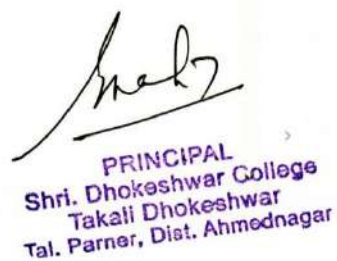 PRINCIPAL
Shri. Dhokeshwar College
Takali Dhokeshwar
Tal. Parner, Dist. Ahmednagar